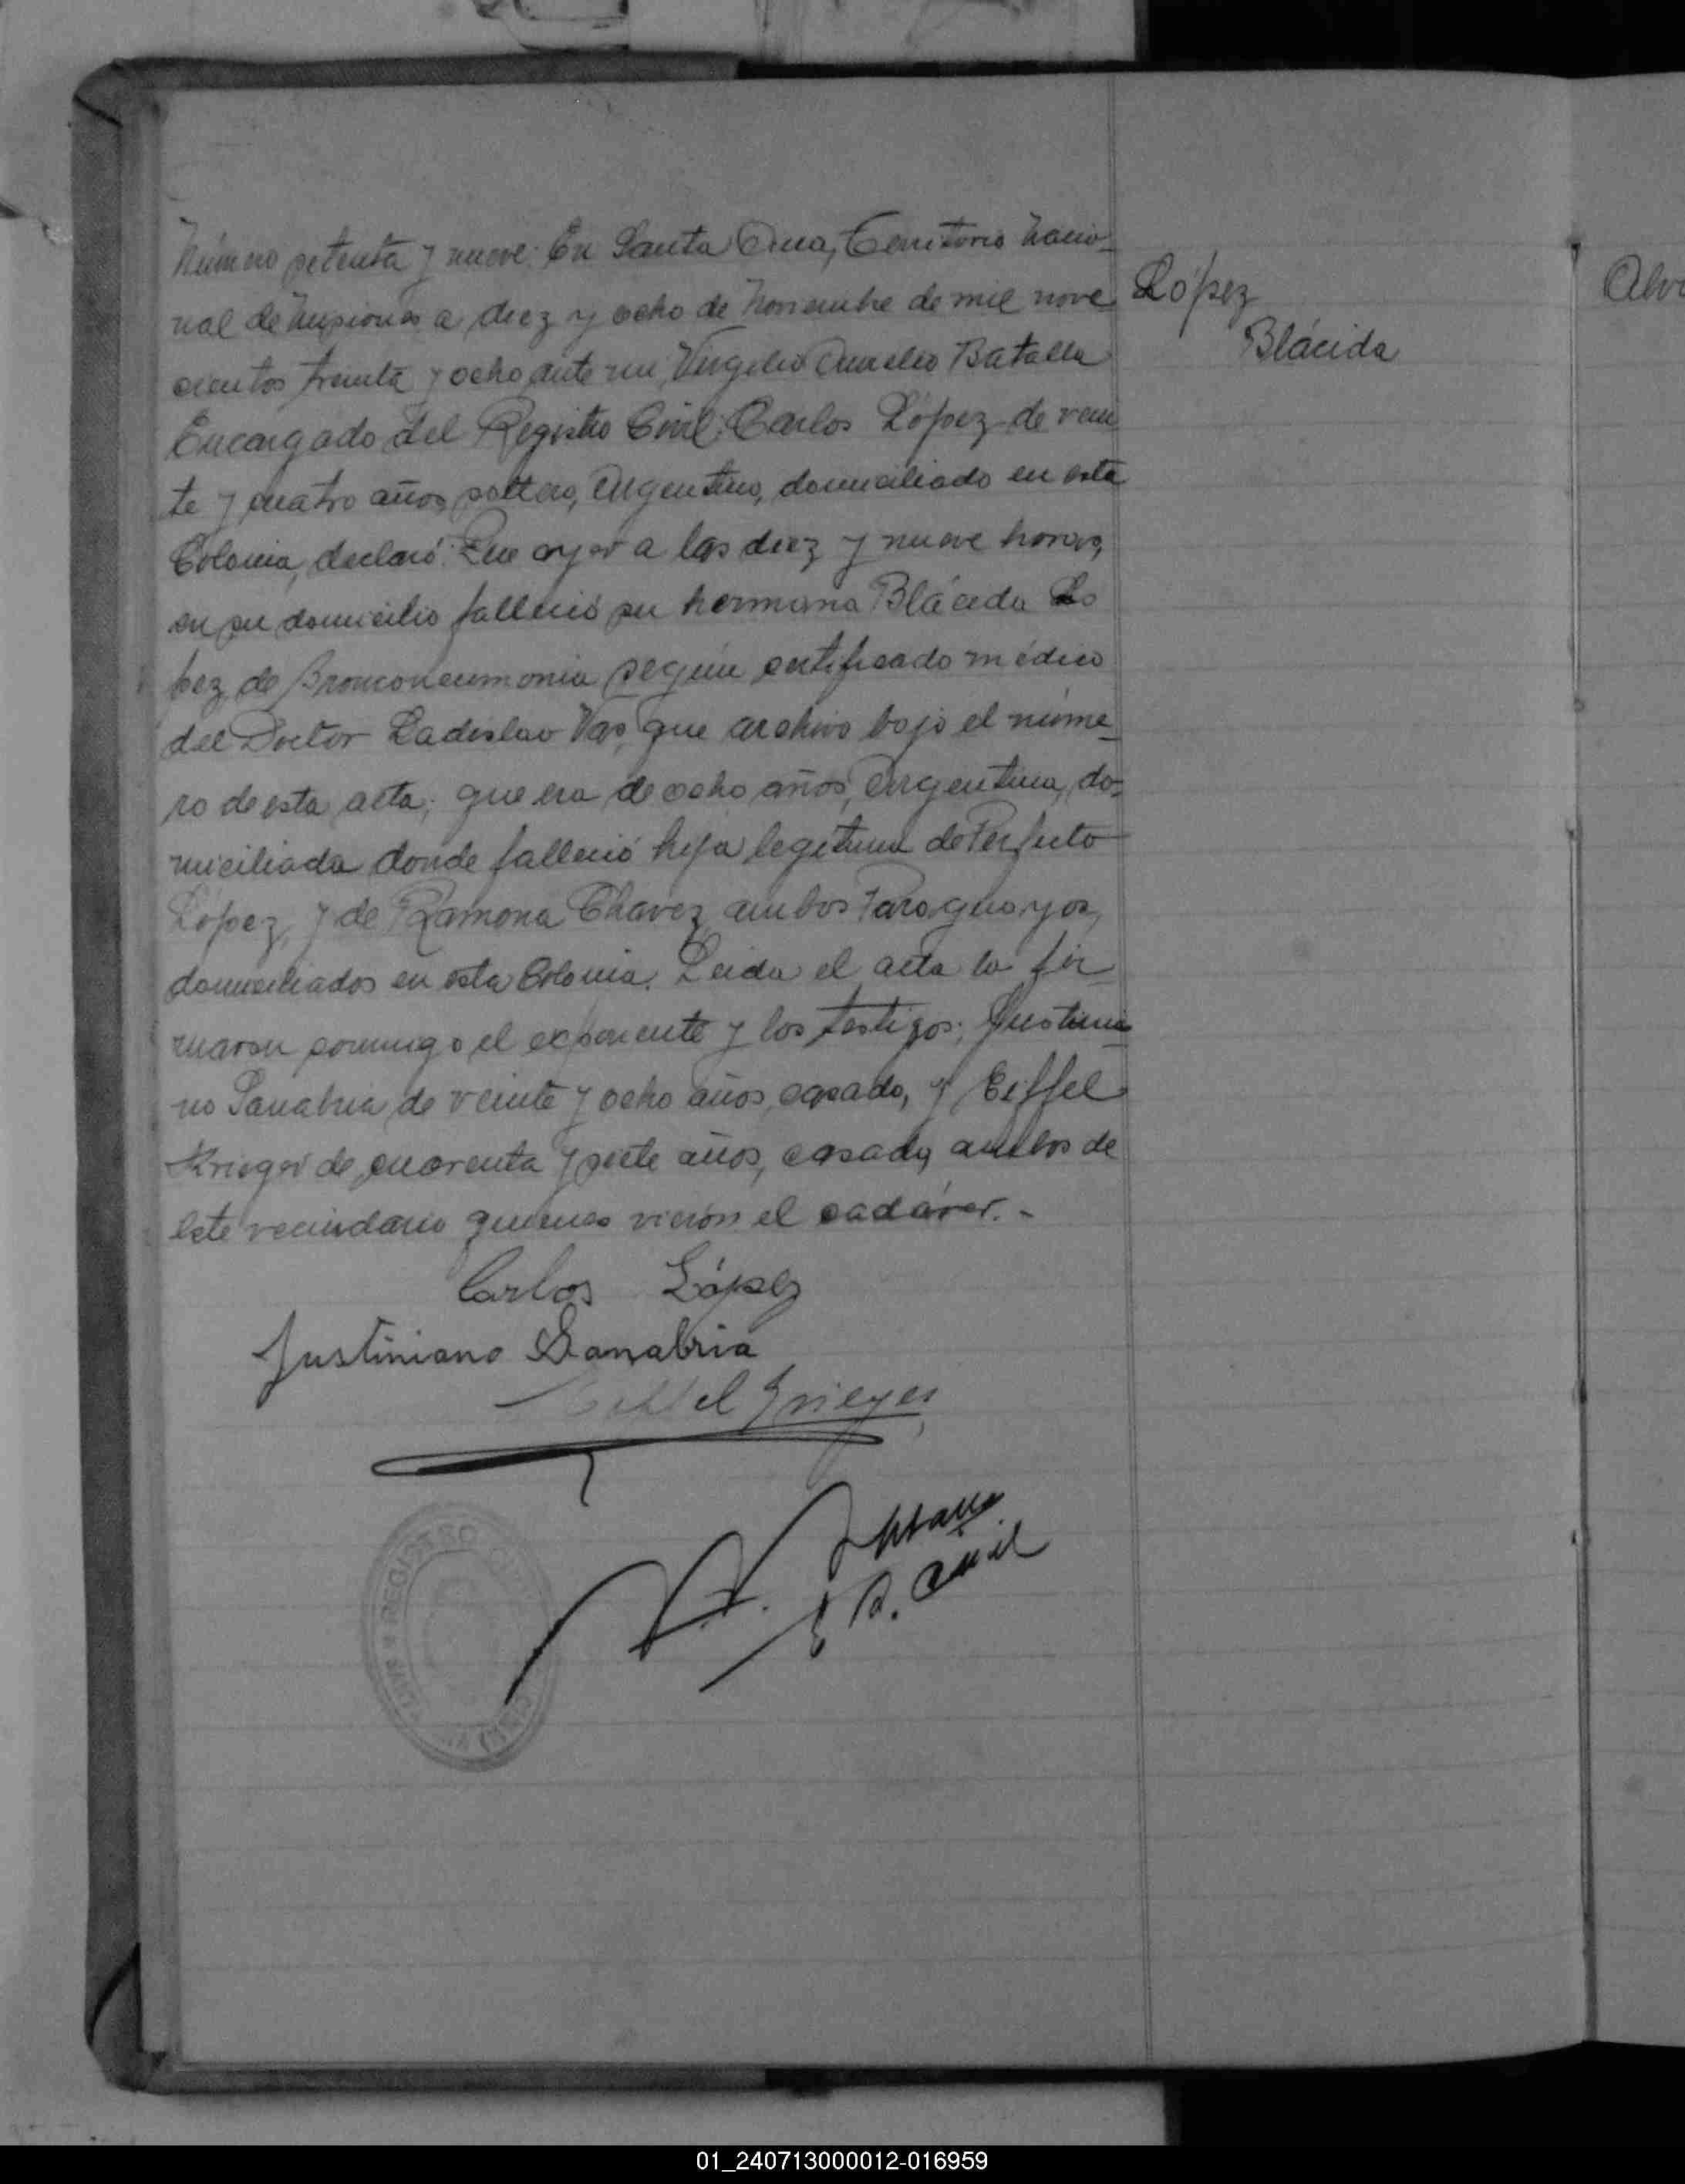 Número setenta y nueve: En Santa Ana, Territorio Nacio-
nal de Misiones a diez y ocho de Noviembre de mil nove-
cientos treinta y ocho, ante mi, Virgilio Aurelio Batalla
Encargado del Registro Civil; Carlos López de vein
te y cuatro años, soltero, Argentino, domiciliado en esta
Colonia, declaró: Que ayer a las diez y nueve horas,
en su domicilio falleció su hermana Blácida Lo
pez, de Bronconeumonia según certificado médico
del Doctor Ladislao Vas, que archivo bajo el núme-
ro de esta acta; que era de ocho años, Argentina, do-
miciliada donde falleció hija legitima de Perfecto
López, y de Ramona Chavez, ambos Paraguayos,
domiciliados en esta Colonia. Leida el acta la fir-
maron conmigo el exponente y los testigos; Justinia-
no Sanabria, de veinte y ocho años, casado, y Eiffel
Krieger de cuarenta y siete años, casado, ambos de
este vecindario quienes vieron el cadáver.-
López
Blácida
Carlos López
Justiniano Sanabria
Eiffel Krieger
E. R. Civil
REGISTRO
Alv
01_240713000012-016959